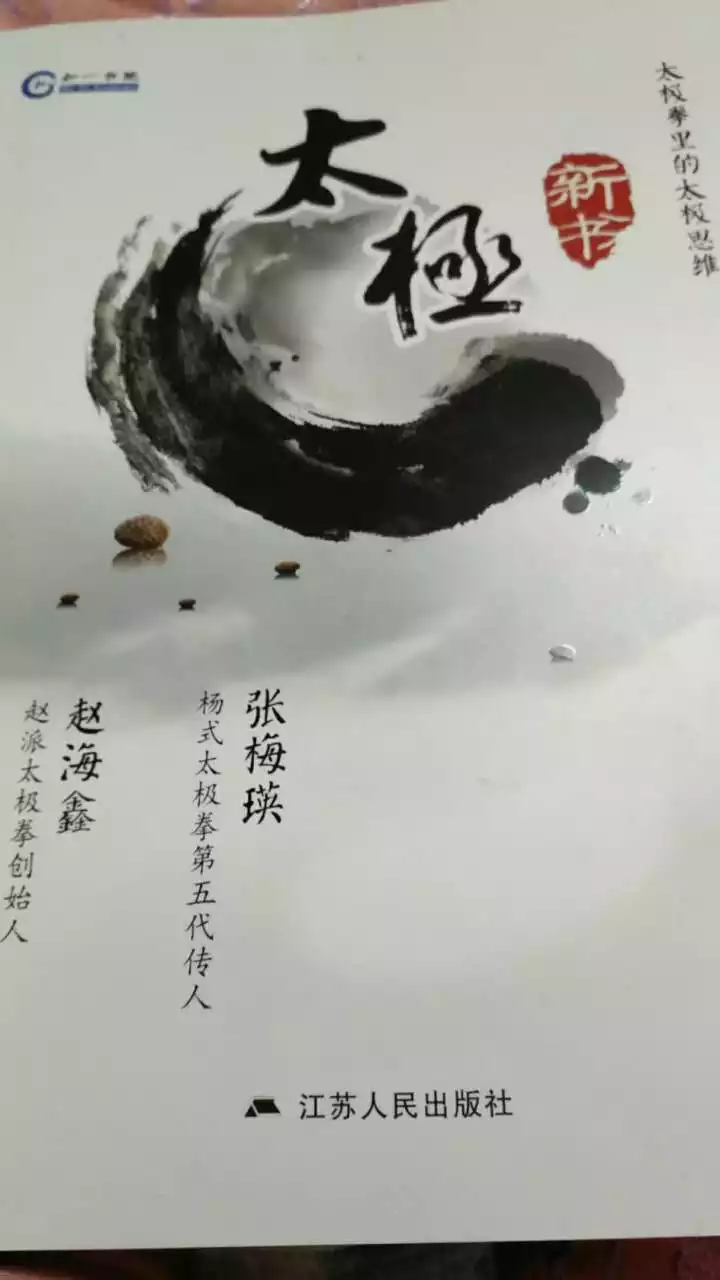 太極
新书
太极拳里的太极思维
张梅瑛
杨式太极拳第五代传人
赵海鑫
赵派太极拳创始人
江苏人民出版社